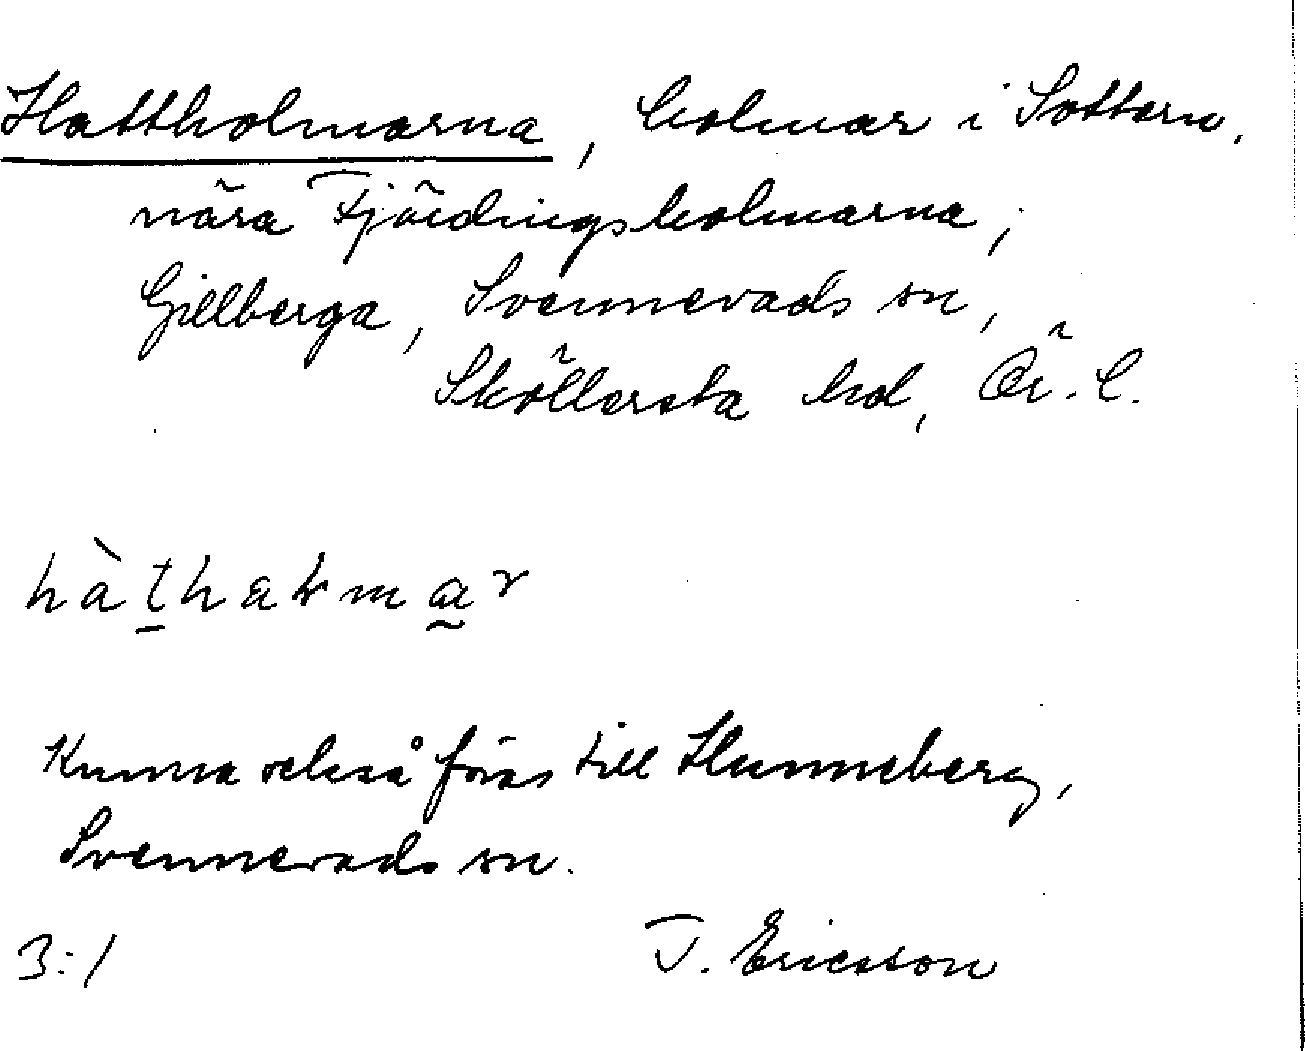 Hattholmarna, holmar i Sottern,
nära Fjärdingsholmarna,
Gillberga, Svennevads sn,
Sköllersta hd, Ör. l.
hàthaɫmar
Kunna också föras till Hunneberg,
Svennevads sn.
3:1 T. Ericsson